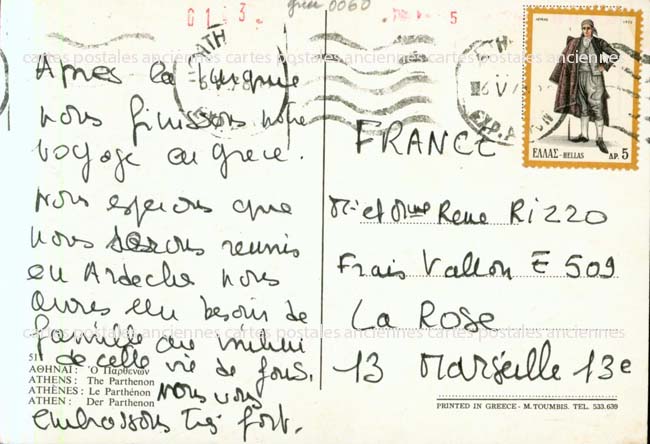 grèce 0060
01 3 5
cartes postales anciennes cartes postales anciennes cartes postales anciennes
Après la Turquie
nous finissons notre
voyage en grèce.
Nous espérons que
nous serons réunis
en Ardèche nous
avons eu besoin de
famille au milieu
de celle vie de fous.
Nous vous
embrassons très fort.
51
ΑΘΗΝΑΙ: Ὁ Παρθενών
ATHENS: The Parthenon
ATHÈNES: Le Parthénon
ATHEN: Der Parthenon
ΕΛΛΑΣ-HELLAS ΔΡ. 5
FRANCE
Mr et Mme Rene RIZZO
Frais Vallon E 509
La Rose
13 Marseille 13e
cartes postales anciennes cartes postales anciennes cartes postales anciennes
PRINTED IN GREECE - M. TOUMBIS. TEL. 533.639